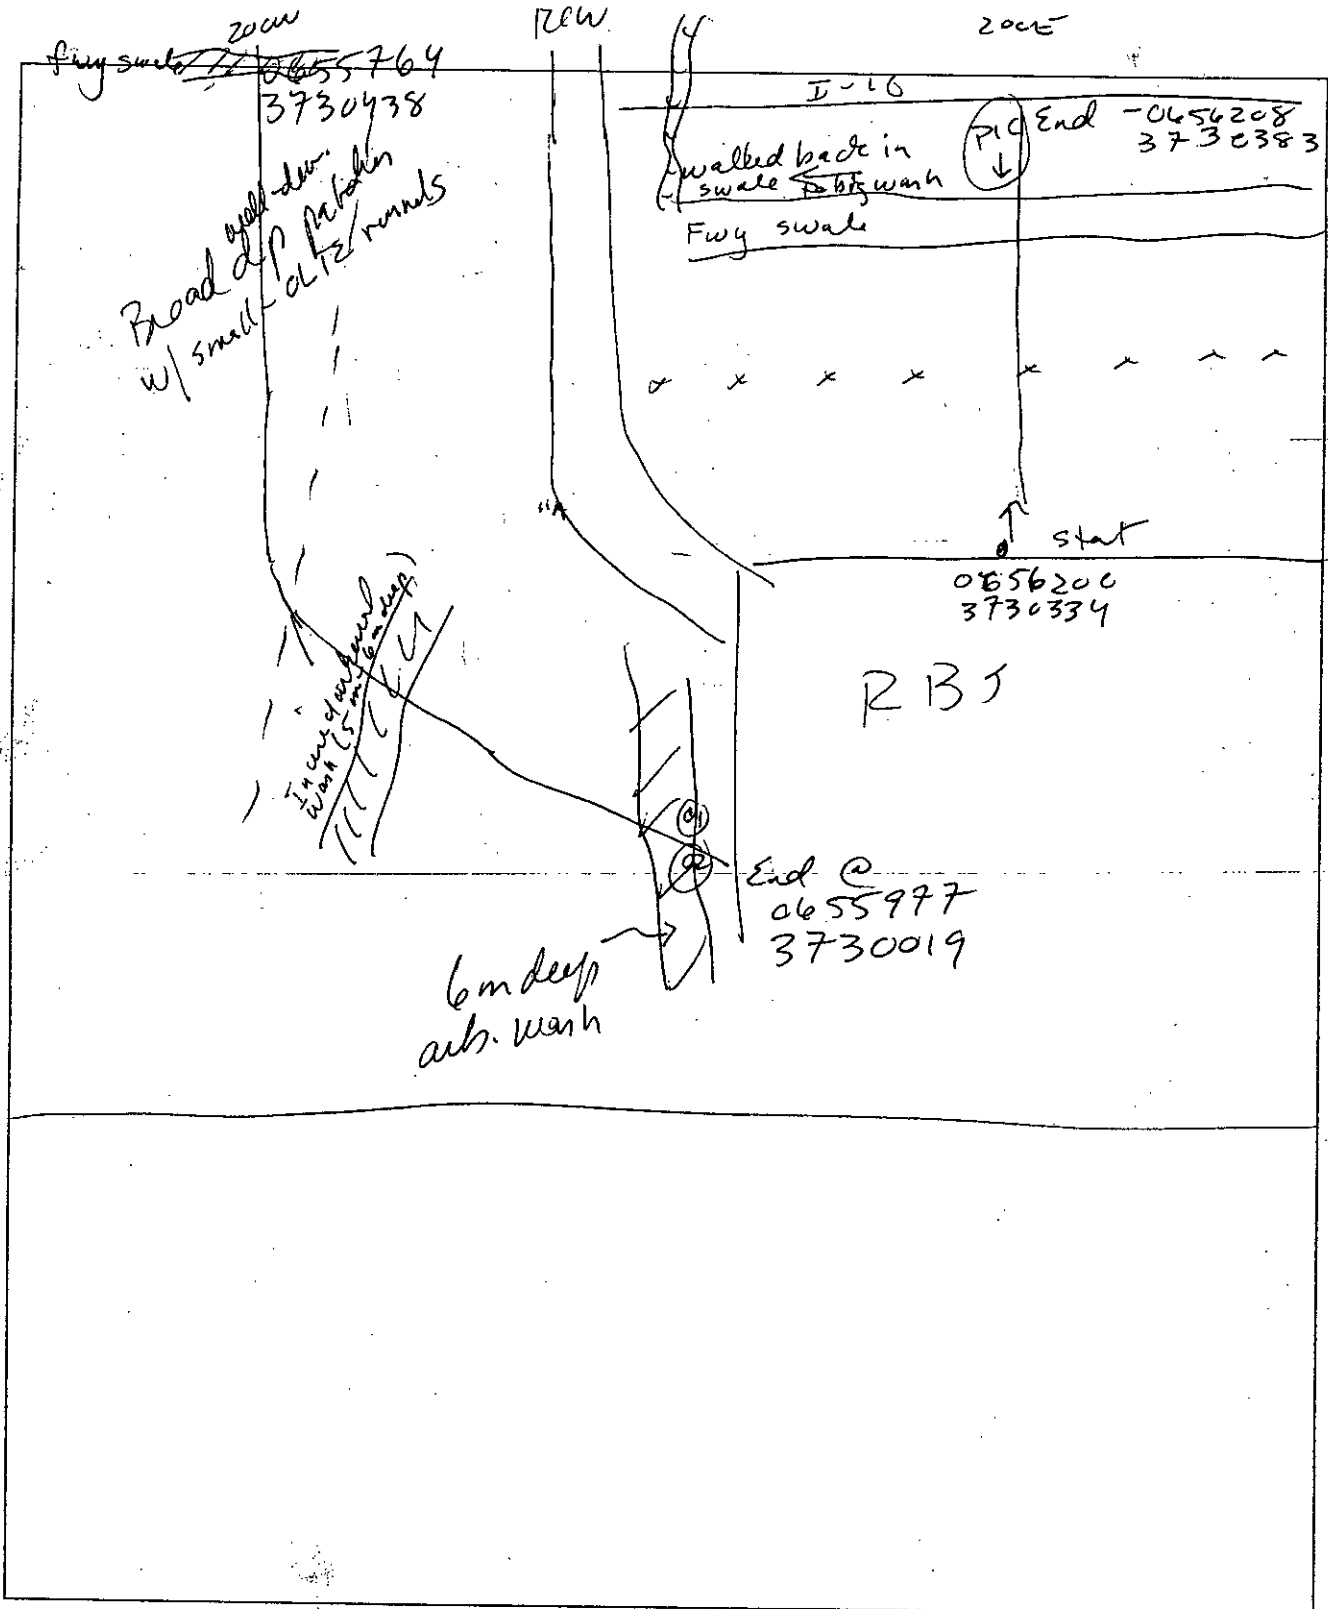 200W
ROW
200E
fwy swale
0655764
3730438
I-10
PIC
End - 0656208
3730383
walled back in
swale to big wash
Fwy swale
Broad well-dev.
dp patches
w/ small - OLTE rounds
start
0656200
3730334
RBJ
wash (5 m, 6 m deep)
01
02
End @
0655977
3730019
6m deep
arb. wash